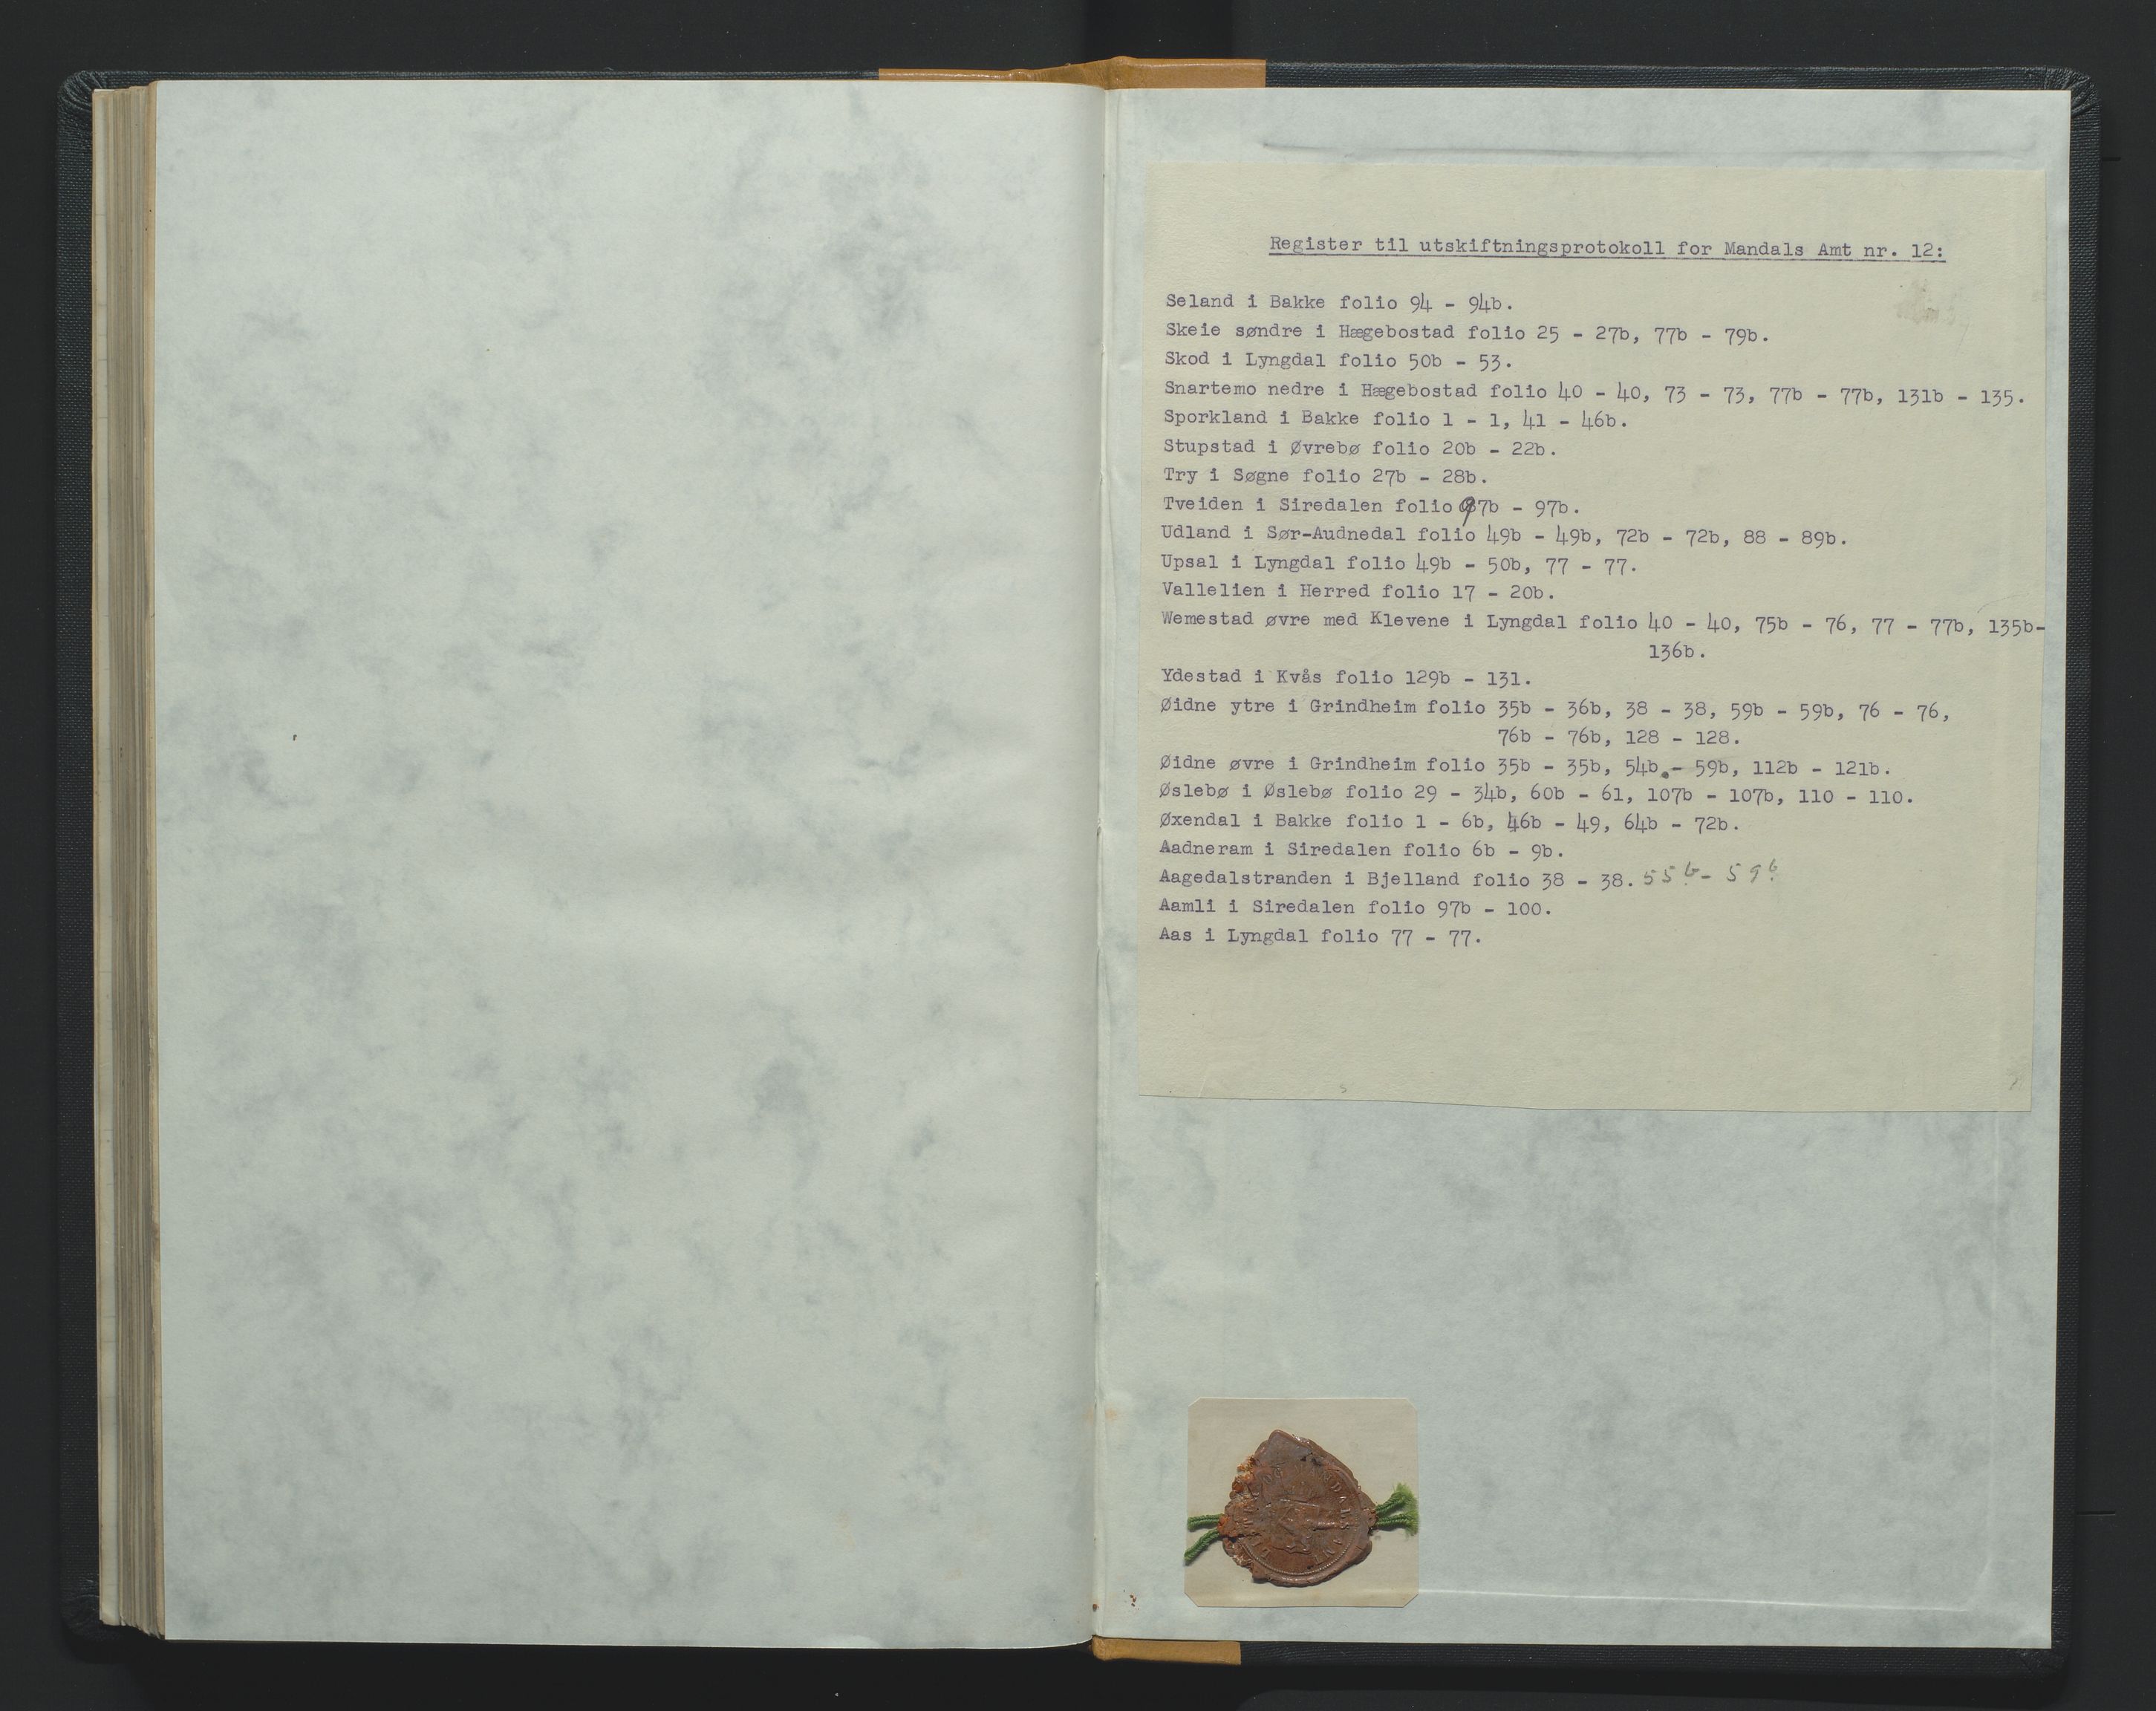 Register til utskiftningsprotokoll for Mandals Amt nr. 12:
Seland i Bakke folio 94 - 94b.
Skeie søndre i Hægebostad folio 25 - 27b, 77b - 79b.
Skod i Lyngdal folio 50b - 53.
Snartemo nedre i Hægebostad folio 40 - 40, 73 - 73, 77b - 77b, 131b - 135.
Sporkland i Bakke folio 1 - 1, 41 - 46b.
Stupstad i Øvrebø folio 20b - 22b.
Try i Søgne folio 27b - 28b.
Tveiden i Siredalen folio 97b - 97b.
Udland i Sør-Audnedal folio 49b - 49b, 72b - 72b, 88 - 89b.
Upsal i Lyngdal folio 49b - 50b, 77 - 77.
Vallelien i Herred folio 17 - 20b.
Wemestad øvre med Klevene i Lyngdal folio 40 - 40, 75b - 76, 77 - 77b, 135b-
136b.
Ydestad i Kvås folio 129b - 131.
Øidne ytre i Grindheim folio 35b - 36b, 38 - 38, 59b - 59b, 76 - 76,
76b - 76b, 128 - 128.
Øidne øvre i Grindheim folio 35b - 35b, 54b.- 59b, 112b - 121b.
Øslebø i Øslebø folio 29 - 34b, 60b - 61, 107b - 107b, 110 - 110.
Øxendal i Bakke folio 1 - 6b, 46b - 49, 64b - 72b.
Aadneram i Siredalen folio 6b - 9b.
Aagedalstranden i Bjelland folio 38 - 38. 55b - 59b
Aamli i Siredalen folio 97b - 100.
Aas i Lyngdal folio 77 - 77.